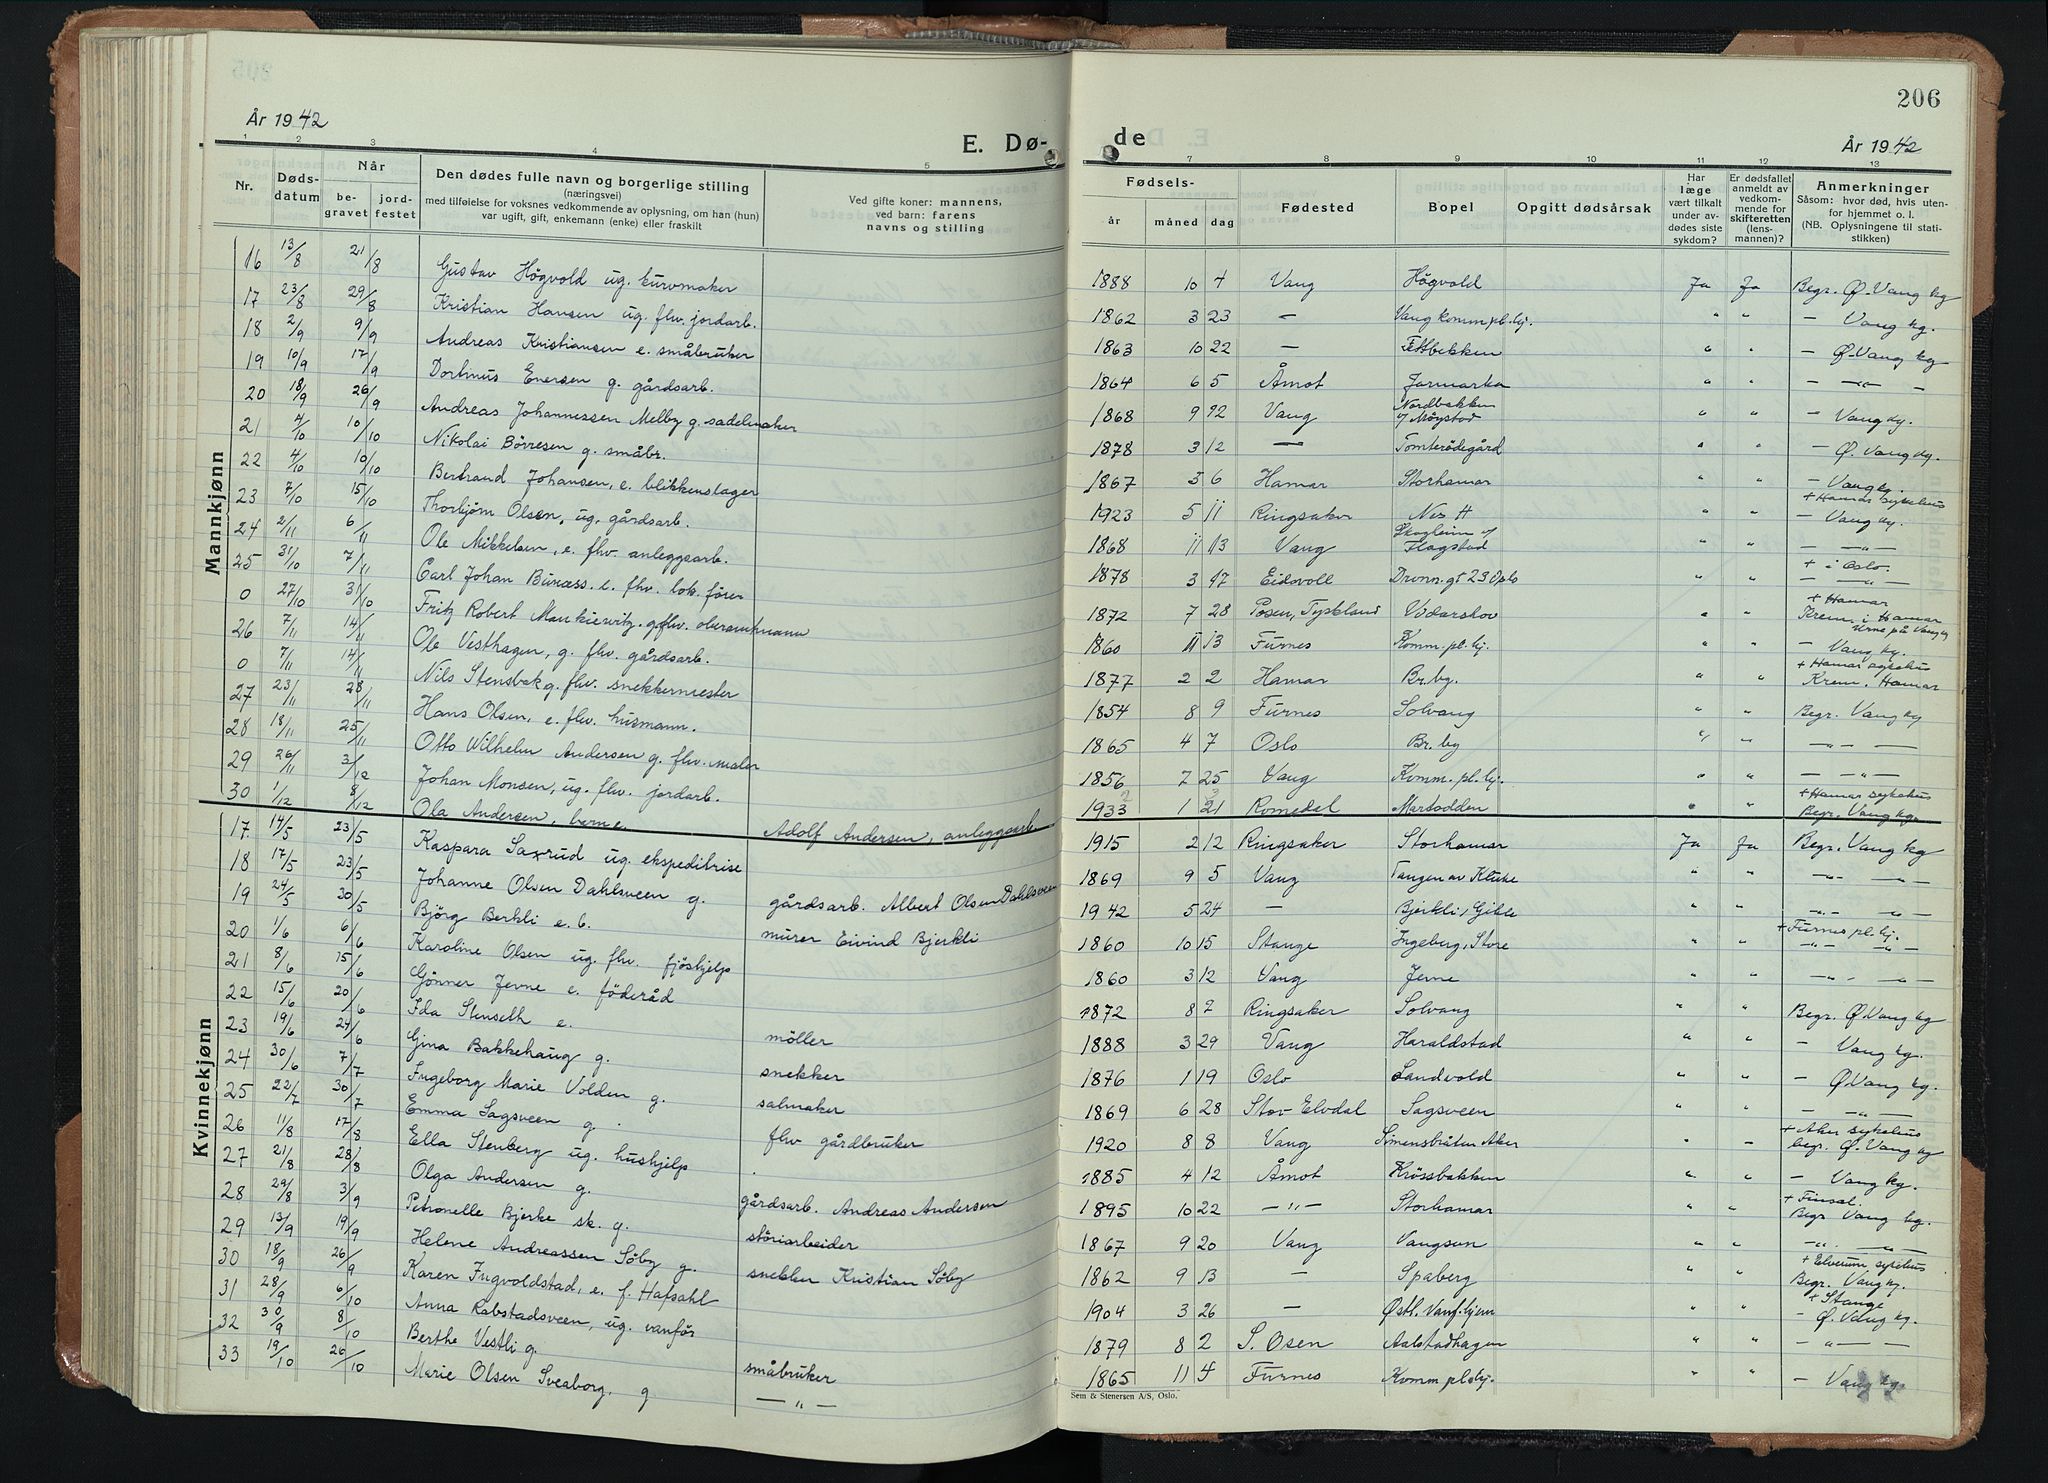 206
År 1942
E. Dø-
de
År 1942
1 2 3 4 5 7 8 9 10 11 12 13
Nr.
Døds-
datum
Når
be-
gravet
jord-
festet
Den dødes fulle navn og borgerlige stilling
(næringsvei)
med tilføielse for voksnes vedkommende av oplysning, om han (hun)
var ugift, gift, enkemann (enke) eller fraskilt
Ved gifte koner: mannens,
ved barn: farens
navns og stilling
Fødsels-
år måned dag
Fødested
Bopel
Opgitt dødsårsak
Har
læge
vært tilkalt
under av-
dødes siste
sykdom?
Er dødsfallet
anmeldt av
vedkom-
mende for
skifteretten
(lens-
mannen)?
Anmerkninger
Såsom: hvor død, hvis uten-
for hjemmet o. l.
(NB. Oplysningene til stati-
stikken)
Mannkjønn
16 13/8 21/8 Gustav Høgvold ug. kurvmaker 1888 10 4 Vang Høgvold Ja Ja Begr. Ø. Vang kg
17 23/8 29/8 Kristian Hansen ug. fhv. jordarb. 1862 3 23 — Vang komm. pl. hj. " " — Vang kg.
18 2/9 9/9 Andreas Kristiansen e. småbruker 1863 10 22 — " " — Ø. Vang kg
19 10/9 17/9 Dortmus Enersen g. gårdsarb. 1864 6 5 Åmot Jarmarka " " — — " — —
20 18/9 26/9 Andreas Johannessen Melby g. sadelmaker 1868 9 12 Vang Nordbakken v/ Møystad " " — Vang kg.
21 4/10 10/10 Nikolai Börresen g. småbr. 1878 3 12 — Tomterødegård " " — Ø. Vang kg.
22 4/10 10/10 Bertrand Johansen, e. blikkenslager 1867 3 6 Hamar Storhamar " " — Vang kg.
23 7/10 15/10 Thorbjørn Olsen, ug. gårdsarb. 1923 5 11 Ringsaker Nes H " " + Hamar sykehus — Vang kg.
24 2/11 6/11 Ole Mikkelsen, e. fhv. anleggsarb. 1868 11 13 Vang Skogheim v/ Flagstad " " — " —
25 31/10 7/11 Carl Johan Buraas. e. fhv. lok. fører 1878 3 17 Eidsvoll Dronn. gt 23 Oslo " " + i Oslo. — " —
0 27/10 31/10 Fritz Robert Mankiewitz. g. fhv. oberamtmann 1872 7 28 Posen, Tyskland Vidarshov " + Hamar Krem. i Hamar Urne på Vang kg
26 7/11 14/11 Ole Vesthagen, g. fhv. gårdsarb. 1860 11 13 Furnes Komm. pl. hj. " " — Vang kg.
0 7/11 14/11 Nils Stensbak g. fhv. snekkermester 1877 2 2 Hamar Br. by. " " + Hamar sykehus Krem. Hamar
27 23/11 28/11 Hans Olsen, e. fhv. husmann. 1854 8 9 Furnes Solvang " " Begr. Vang kg
28 18/11 25/11 Otto Wilhelm Andersen g. fhv. maler 1865 4 7 Oslo Br. by " " — " — —
29 26/11 3/12 Johan Monsen, ug. fhv. jordarb. 1856 7 25 Vang Komm. pl. hj. " " — " —
30 1/12 8/12 Ola Andersen, barn e. Adolf Andersen, anleggsarb 1933 1 21 Romedal Martodden " " + Hamar sykehus Begr. Vang kg.
Kvinnekjønn
17. 14/5 23/5 Kaspara Saxrud ug. ekspeditrise 1915 2 12 Ringsaker Storhamar Ja Ja Begr. Vang kg
18 17/5 23/5 Johanne Olsen Dahlsveen g. gårdsarb. Albert Olsen Dahlsveen 1869 9 5 Vang Tangen av Kluke " " — " — — " —
19 24/5 30/5 Björg Berkli e. b. murer Eivind Bjerkli 1942 5 24 — Bjerkli, " " — " — — " —
20 1/6 6/6 Karoline Olsen ug. fhv. fjöshjelp 1860 10 15 Stange Ingeberg, Store " " + Furnes pl. hj. — " — — " —
21 8/6 15/6 Gönner Jevne e. föderåd 1860 3 12 Vang Jevne " " — " — — " —
22 15/6 20/6 Ida Stenseth e. möller 1872 8 7 Ringsaker Solvang " " Begr. Ø. Vang kg
23 19/6 24/6 Gina Bakkehaug g. snekker 1888 3 29 Vang Haraldstad " " — Vang kg.
24 30/6 7/7 Ingeborg Marie Volden g. salmaker 1876 1 19 Oslo Sandvold " " — Ø. Vang kg.
25 22/7 30/7 Emma Sagsveen g. fhv gårdbruker 1869 6 28 Stor-Elvdal Sagsveen " " — — " —
26 11/8 17/8 Ella Stenberg ug. hushjelp 1920 8 8 Vang Simensbråten Aker " — + Aker sykehus begr. Ø. Vang kg
27 21/8 28/8 Olga Andersen g. gårdsarb. Andreas Andersen 1885 4 12 Åmot Krössbakken " " — Vang kg.
28 29/8 3/9 Petronelle Bjerke sk. g. störiarbeider 1895 10 22 — " — Storhamar " " + Finsal. Begr. Vang kg.
29 13/9 19/9 Helene Andreassen Söby g. snekker Kristian Söby 1867 9 20 Vang Vangsen " " — " — — " —
30 18/9 26/9 Karen Ingvoldstad, e. f. Hafsahl 1862 9 13 — Spaberg " " + Elverum sykehus Begr. Vang kg.
31 28/9 6/10 Anna Rabstadsveen, ug. vanför 1904 3 26 — Østl. Vanf. hjem " " + Stange — Ø. Vang kg.
32 30/9 8/10 Berthe Vestli g. småbruker 1879 8 2 S. Osen Aalstadhagen " " — — " —
33 19/10 26/10 Marie Olsen Sveaborg, g — " — 1865 11 4 Furnes Komm pl. hj. " " — Vang kg.
Sem & Stenersen A/S, Oslo.